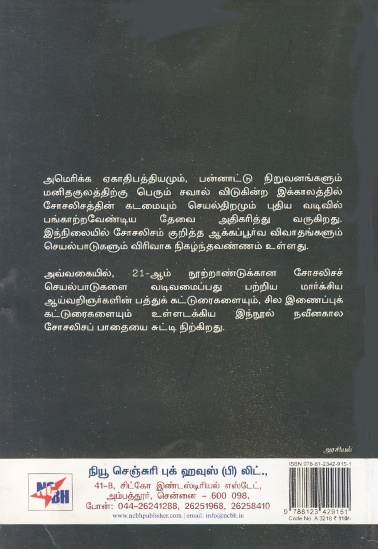 அமெரிக்க ஏகாதிபத்தியமும், பன்னாட்டு நிறுவனங்களும்
மனிதகுலத்திற்கு பெரும் சவால் விடுகின்ற இக்காலத்தில்
சோசலிசத்தின் கடமையும் செயல்திறமும் புதிய வடிவில்
பங்காற்றவேண்டிய தேவை அதிகரித்து வருகிறது.
இந்நிலையில் சோசலிசம் குறித்த ஆக்கப்பூர்வ விவாதங்களும்
செயல்பாடுகளும் விரிவாக நிகழ்ந்தவண்ணம் உள்ளது.
அவ்வகையில், 21-ஆம் நூற்றாண்டுக்கான சோசலிசச்
செயல்பாடுகளை வடிவமைப்பது பற்றிய மார்க்சிய
ஆய்வறிஞர்களின் பத்துக் கட்டுரைகளையும், சில இணைப்புக்
கட்டுரைகளையும் உள்ளடக்கிய இந்நூல் நவீனகால
சோசலிசப் பாதையை சுட்டி நிற்கிறது.
அரசியல்
NCBH
நியூ செஞ்சுரி புக் ஹவுஸ் (பி) லிட்.,
41-B, சிட்கோ இண்டஸ்டிரியல் எஸ்டேட்,
அம்பத்தூர், சென்னை - 600 098.
போன்: 044-26241288, 26251968, 26258410
www.ncbhpublisher.com | email: info@ncbh.in
ISBN 978-81-2342-915-1
9 788123 429151
Code No. A 3218 ₹ 110/-